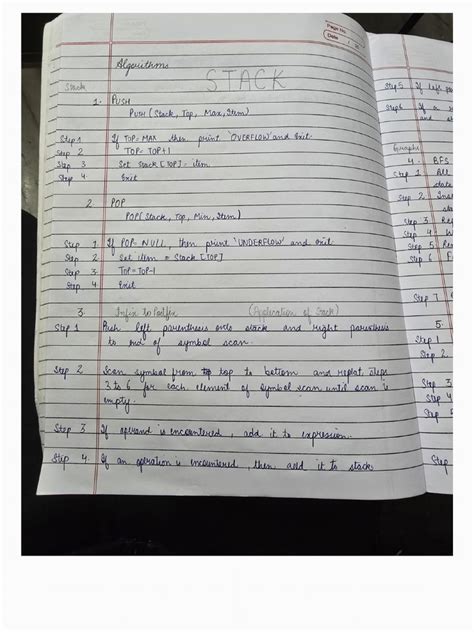 Page No.
Date / /
Algorithms
STACK
Stack
1. PUSH
PUSH (Stack, Top, Max, Item)
Step 1 If TOP=MAX then print 'OVERFLOW' and Exit
Step 2 TOP= TOP+1
Step 3 Set Stack [TOP]= item
Step 4 Exit
2. POP
POP( Stack, Top, Min, Item)
Step 1. If POP= NULL, then print 'UNDERFLOW' and exit
Step 2 Set item = Stack [TOP]
Step 3. TOP=TOP-1
Step 4 Exit
3. Infix to Postfix (Application of Stack)
Step 1 Push left parenthesis onto stack and right parenthesis
to of symbol scan.
Step 2 Scan symbol from top to bottom and repeat, steps
3 to 6 for each element of symbol scan until scan is
empty.
Step 3 If operand is encountered, add it to expression.
Step 4. If an operation is encountered, then add it to stack
Step 5 If left
Step 6 If a
and
Graphs
4. BFS
Step 1 All
state
Step 2
Step 3
Step 4
Step 5
Step 6
Step 7
5.
Step 1
Step 2.
Step 3
Step 4
Step
Step